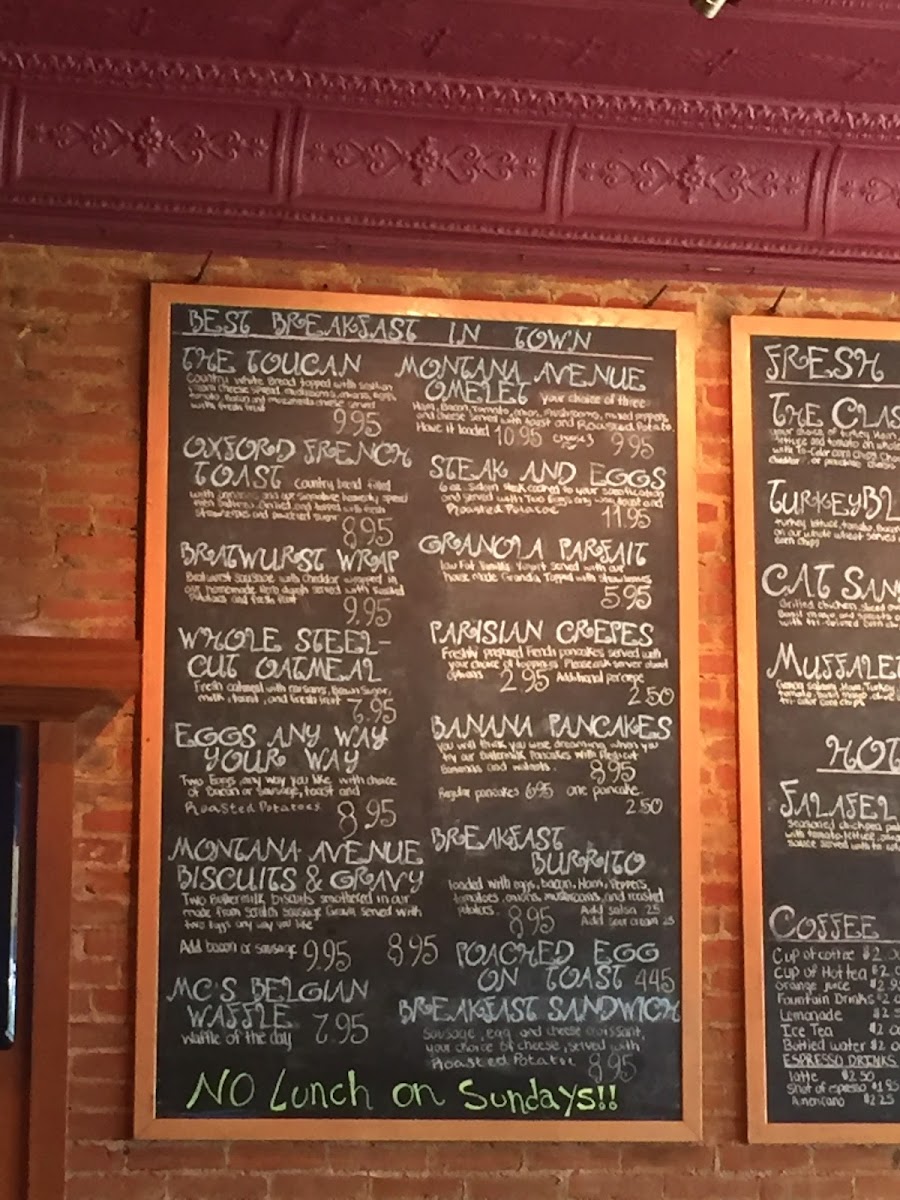 BEST BREAKFAST IN TOWN
THE TOUCAN
Country White Bread topped with
cheese spread, mushrooms, onions, eggs
tomato, Bacon and Mozzarella cheese served
with fresh fruit
9.95
OXFORD FRENCH
TOAST Country bread filled
with and our signature honesty spread
Grilled and topped with fresh
strawberries and powdered sugar
8.95
BRATWURST WRAP
Bratwurst sausage with cheddar wrapped in
our homemade Herb dough served with Roasted
Potatoes and fresh fruit
9.95
WHOLE STEEL-
CUT OATMEAL
Fresh oatmeal with Brown Sugar,
milk, toast, and fresh fruit 7.95
EGGS ANY WAY
YOUR WAY
Two Eggs any way you like with choice
of Bacon or Sausage, toast and
Roasted Potatoes
8.95
MONTANA AVENUE
BISCUITS & GRAVY
Two Buttermilk biscuits smothered in our
made from scratch sausage Gravy served with
two Eggs any way you like
Add bacon or sausage 9.95 8.95
MC'S BELGIAN
WAFFLE 7.95
Waffle of the day
MONTANA AVENUE
OMELET your choice of three
Ham, Bacon, Tomato, onion, Mushrooms, mixed peppers
and cheese served with toast and Roasted Potato.
Have it loaded 10.95 9.95
STEAK AND EGGS
6 oz. Sirloin steak cooked to your specification
and served with Two Eggs any way, toast and
Roasted Potatoe
11.95
GRANOLA PARFAIT
low Fat Vanilla Yogurt served with our
house made Granola Topped with strawberries
5.95
PARISIAN CREPES
Freshly prepared French pancakes served with
your choice of toppings. Please ask server about
options 2.95 Additional per crepe
2.50
BANANA PANCAKES
you will think you were dreaming when you
try our Buttermilk Pancakes with Fresh cut
Bananas and walnuts. 8.95
Regular pancakes 6.95 one pancake
2.50
BREAKFAST
BURRITO
loaded with eggs, bacon, Ham, Peppers,
tomatoes, onions, mushrooms, and roasted
potatoes. 8.95 Add salsa .25
Add sour cream .25
POACHED EGG
ON TOAST 4.45
BREAKFAST SANDWICH
Sausage, egg, and cheese croissant,
your choice of cheese, served with
Roasted Potatoe 8.95
NO Lunch on Sundays!!
FRESH
THE CLAS
your choice of turkey, Ham,
lettuce and tomato on whole
with Tri-Color corn Chips. Choi
cheddar, or provolone cheese
TURKEYBL
turkey, lettuce, tomato, Bacon
on our whole wheat served
corn chips
CAT SAN
Grilled chicken, sliced
Basil mayo and
with tri-colored corn ch
MUFFALET
Genoa salami, Ham, Turkey
tomato, basil mayo, olive
tri-color corn chips
HOT
FALAFEL
seasoned chickpea
with tomato, lettuce,
sauce served with tri co
COFFEE
Cup of coffee $2.0
Cup of Hot tea $2.0
orange juice $2.9
Fountain Drinks $2.0
Lemonade $2.5
Ice Tea $2.0
Bottled water $2.0
ESPRESSO DRINKS
latte $2.50
Shot of espresso $1.95
Americano $2.25